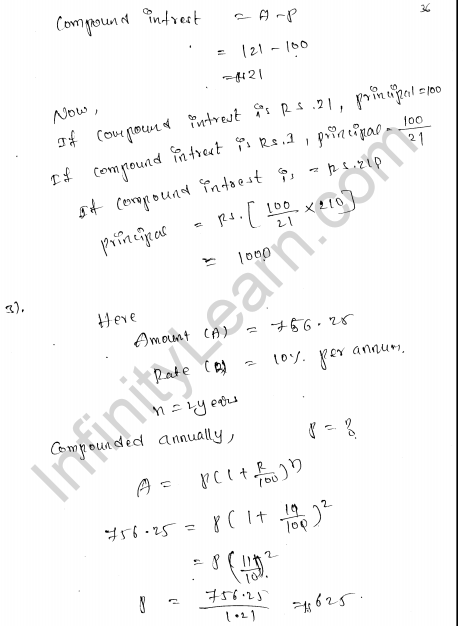 36
Compound intrest = A - P
= 121 - 100
= ₨21
Now,
If compound intrest is Rs.21, principal = 100
If compound intrest is Rs.1, principal = 100/21
If compound intrest is = Rs.210
principal = Rs. [100/21 × 210]
= 1000
3).
Here
Amount (A) = 756.25
Rate (R) = 10% per annum.
n = 2 years
Compounded annually, P = ?
A = P(1 + R/100)^n
756.25 = P(1 + 10/100)^2
= P(11/10)^2
P = 756.25/1.21 = ₨625.
InfinityLearn.com